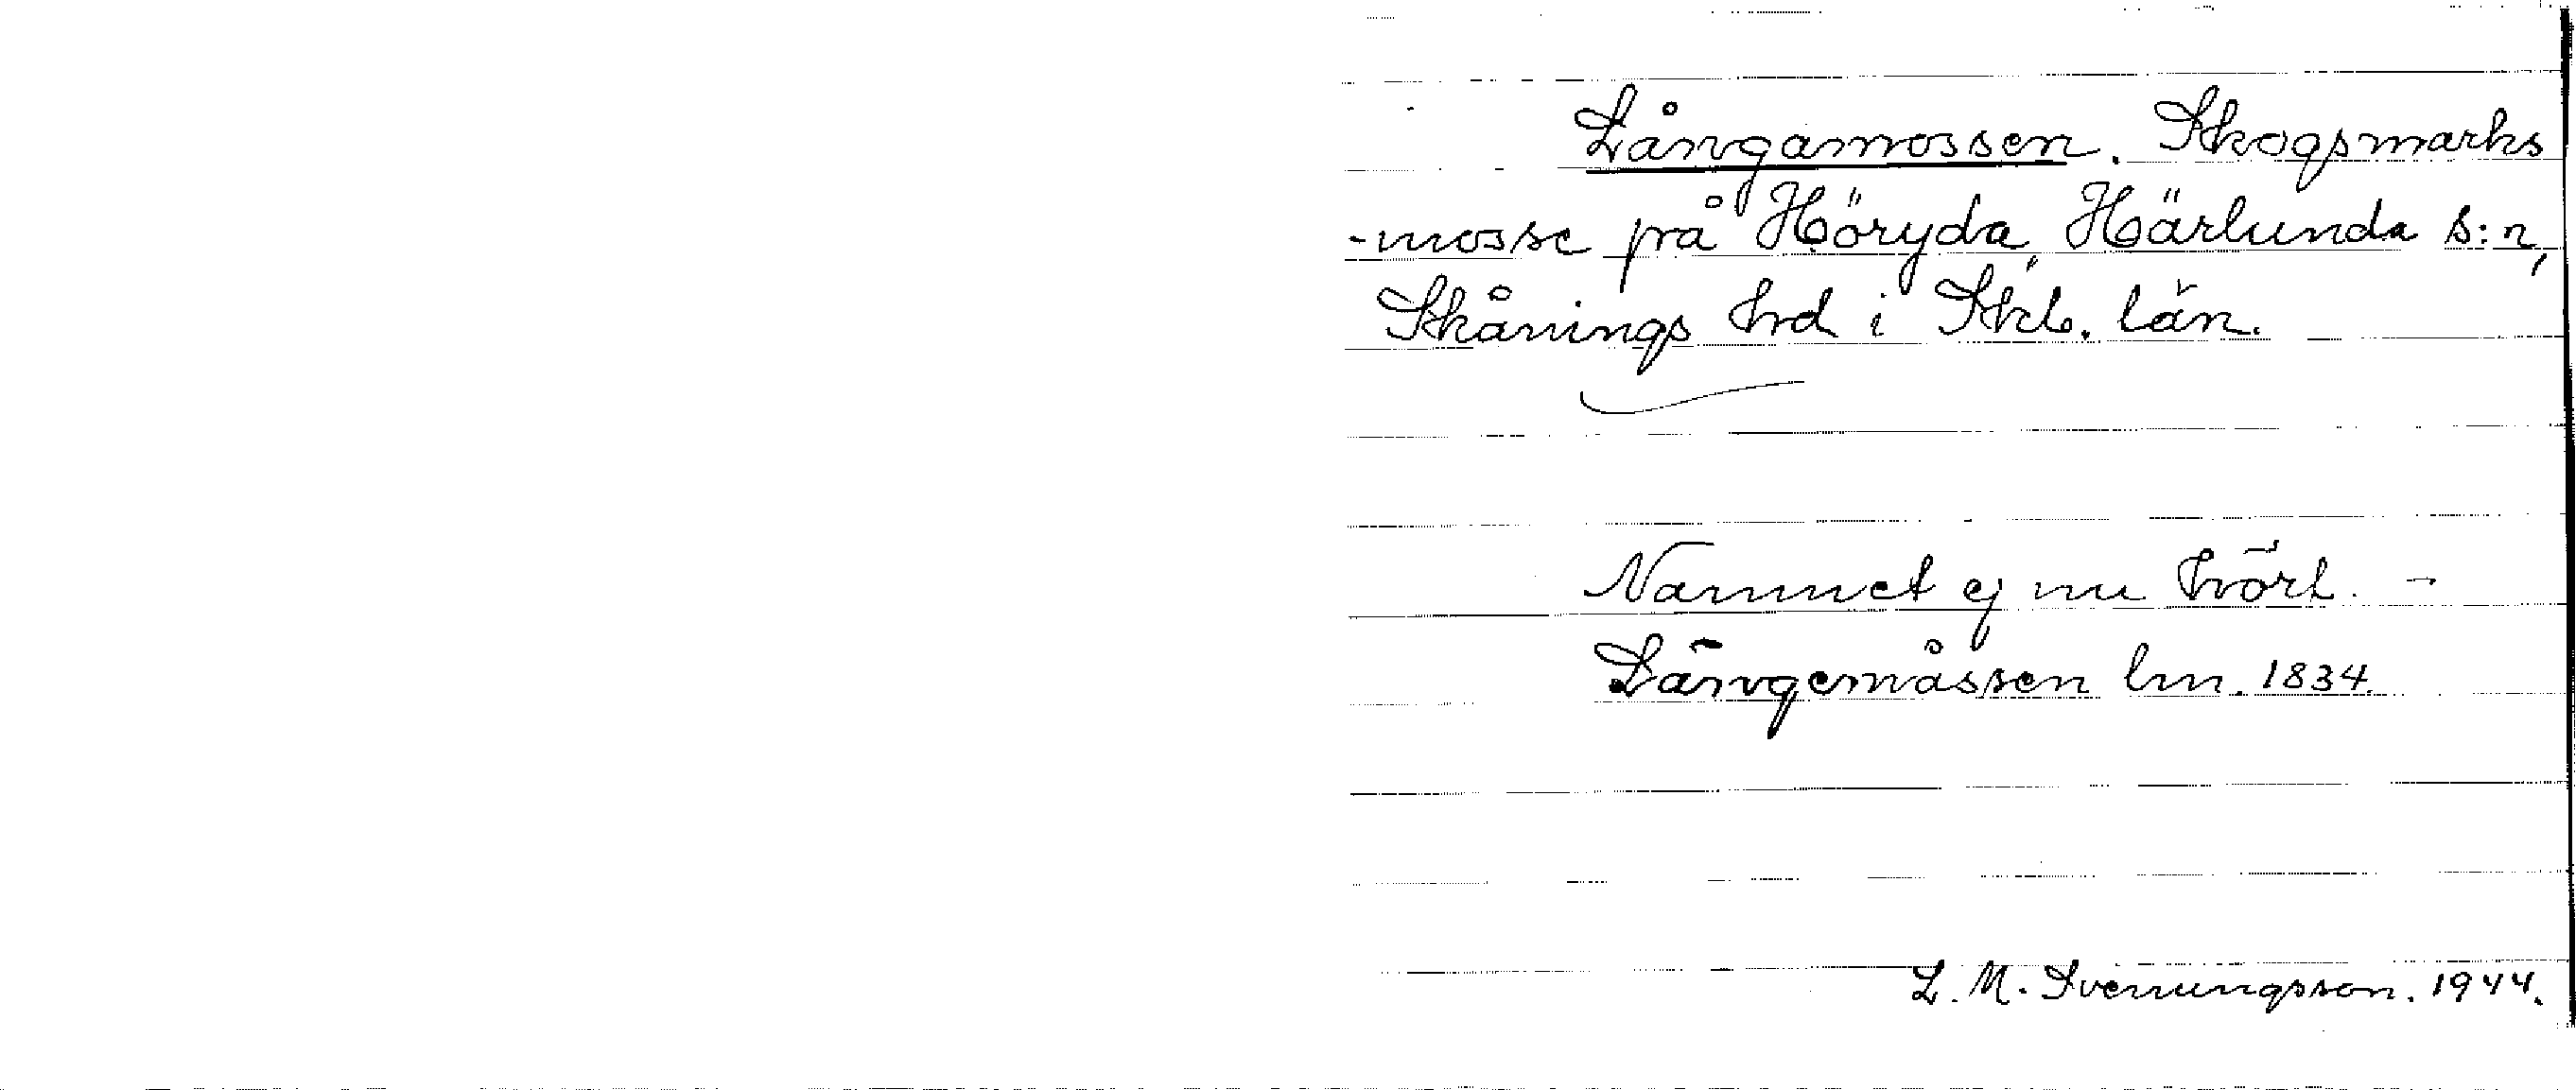 Långamossen. Skogsmarks
-mosse på Höryda, Härlunda s:n,
Skånings hrd i Skb. län.
Namnet ej nu hört. -
Långemåssen lm. 1834.
L. M. Svenungsson. 1944.